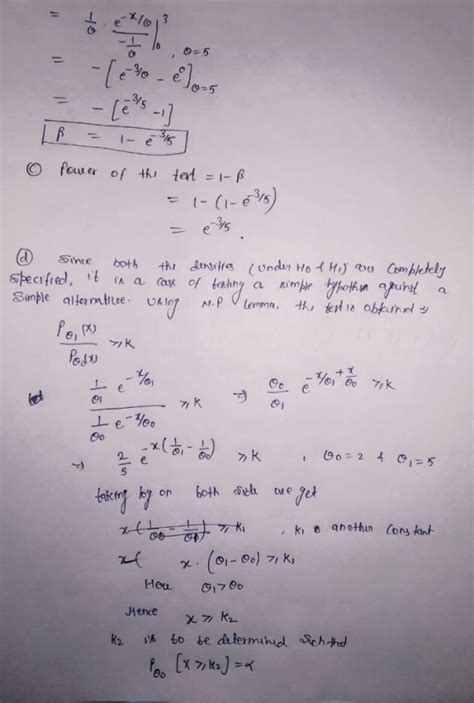 = 1/θ · e^{-x/θ} / (-1/θ) |_0^3
= , θ=5
- [e^{-3/θ} - e^0]_{θ=5}
= - [e^{-3/5} - 1]
β = 1 - e^{-3/5}
(c) Power of the test = 1-β
= 1 - (1 - e^{-3/5})
= e^{-3/5}.
(d) Since both the densities (under H0 & H1) are completely
specified, it is a case of testing a simple hypothesis against a
simple alternative. Using N.P lemma, the test is obtained
P_{θ1}(x) / P_{θ0}(x) ≥ K
1/θ1 e^{-x/θ1} / 1/θ0 e^{-x/θ0} ≥ K ⇒ θ0/θ1 e^{-x/θ1 + x/θ0} ≥ K
⇒ 2/5 e^{-x(1/θ1 - 1/θ0)} ≥ K , θ0 = 2 & θ1 = 5
taking log on both side we get
x(1/θ0 - 1/θ1) ≥ K1 , K1 is another constant
x( x · (θ1 - θ0) ≥ K1
Here θ1 > θ0
Hence x ≥ K2
K2 is to be determined such that
P_{θ0} [X ≥ K2] = α